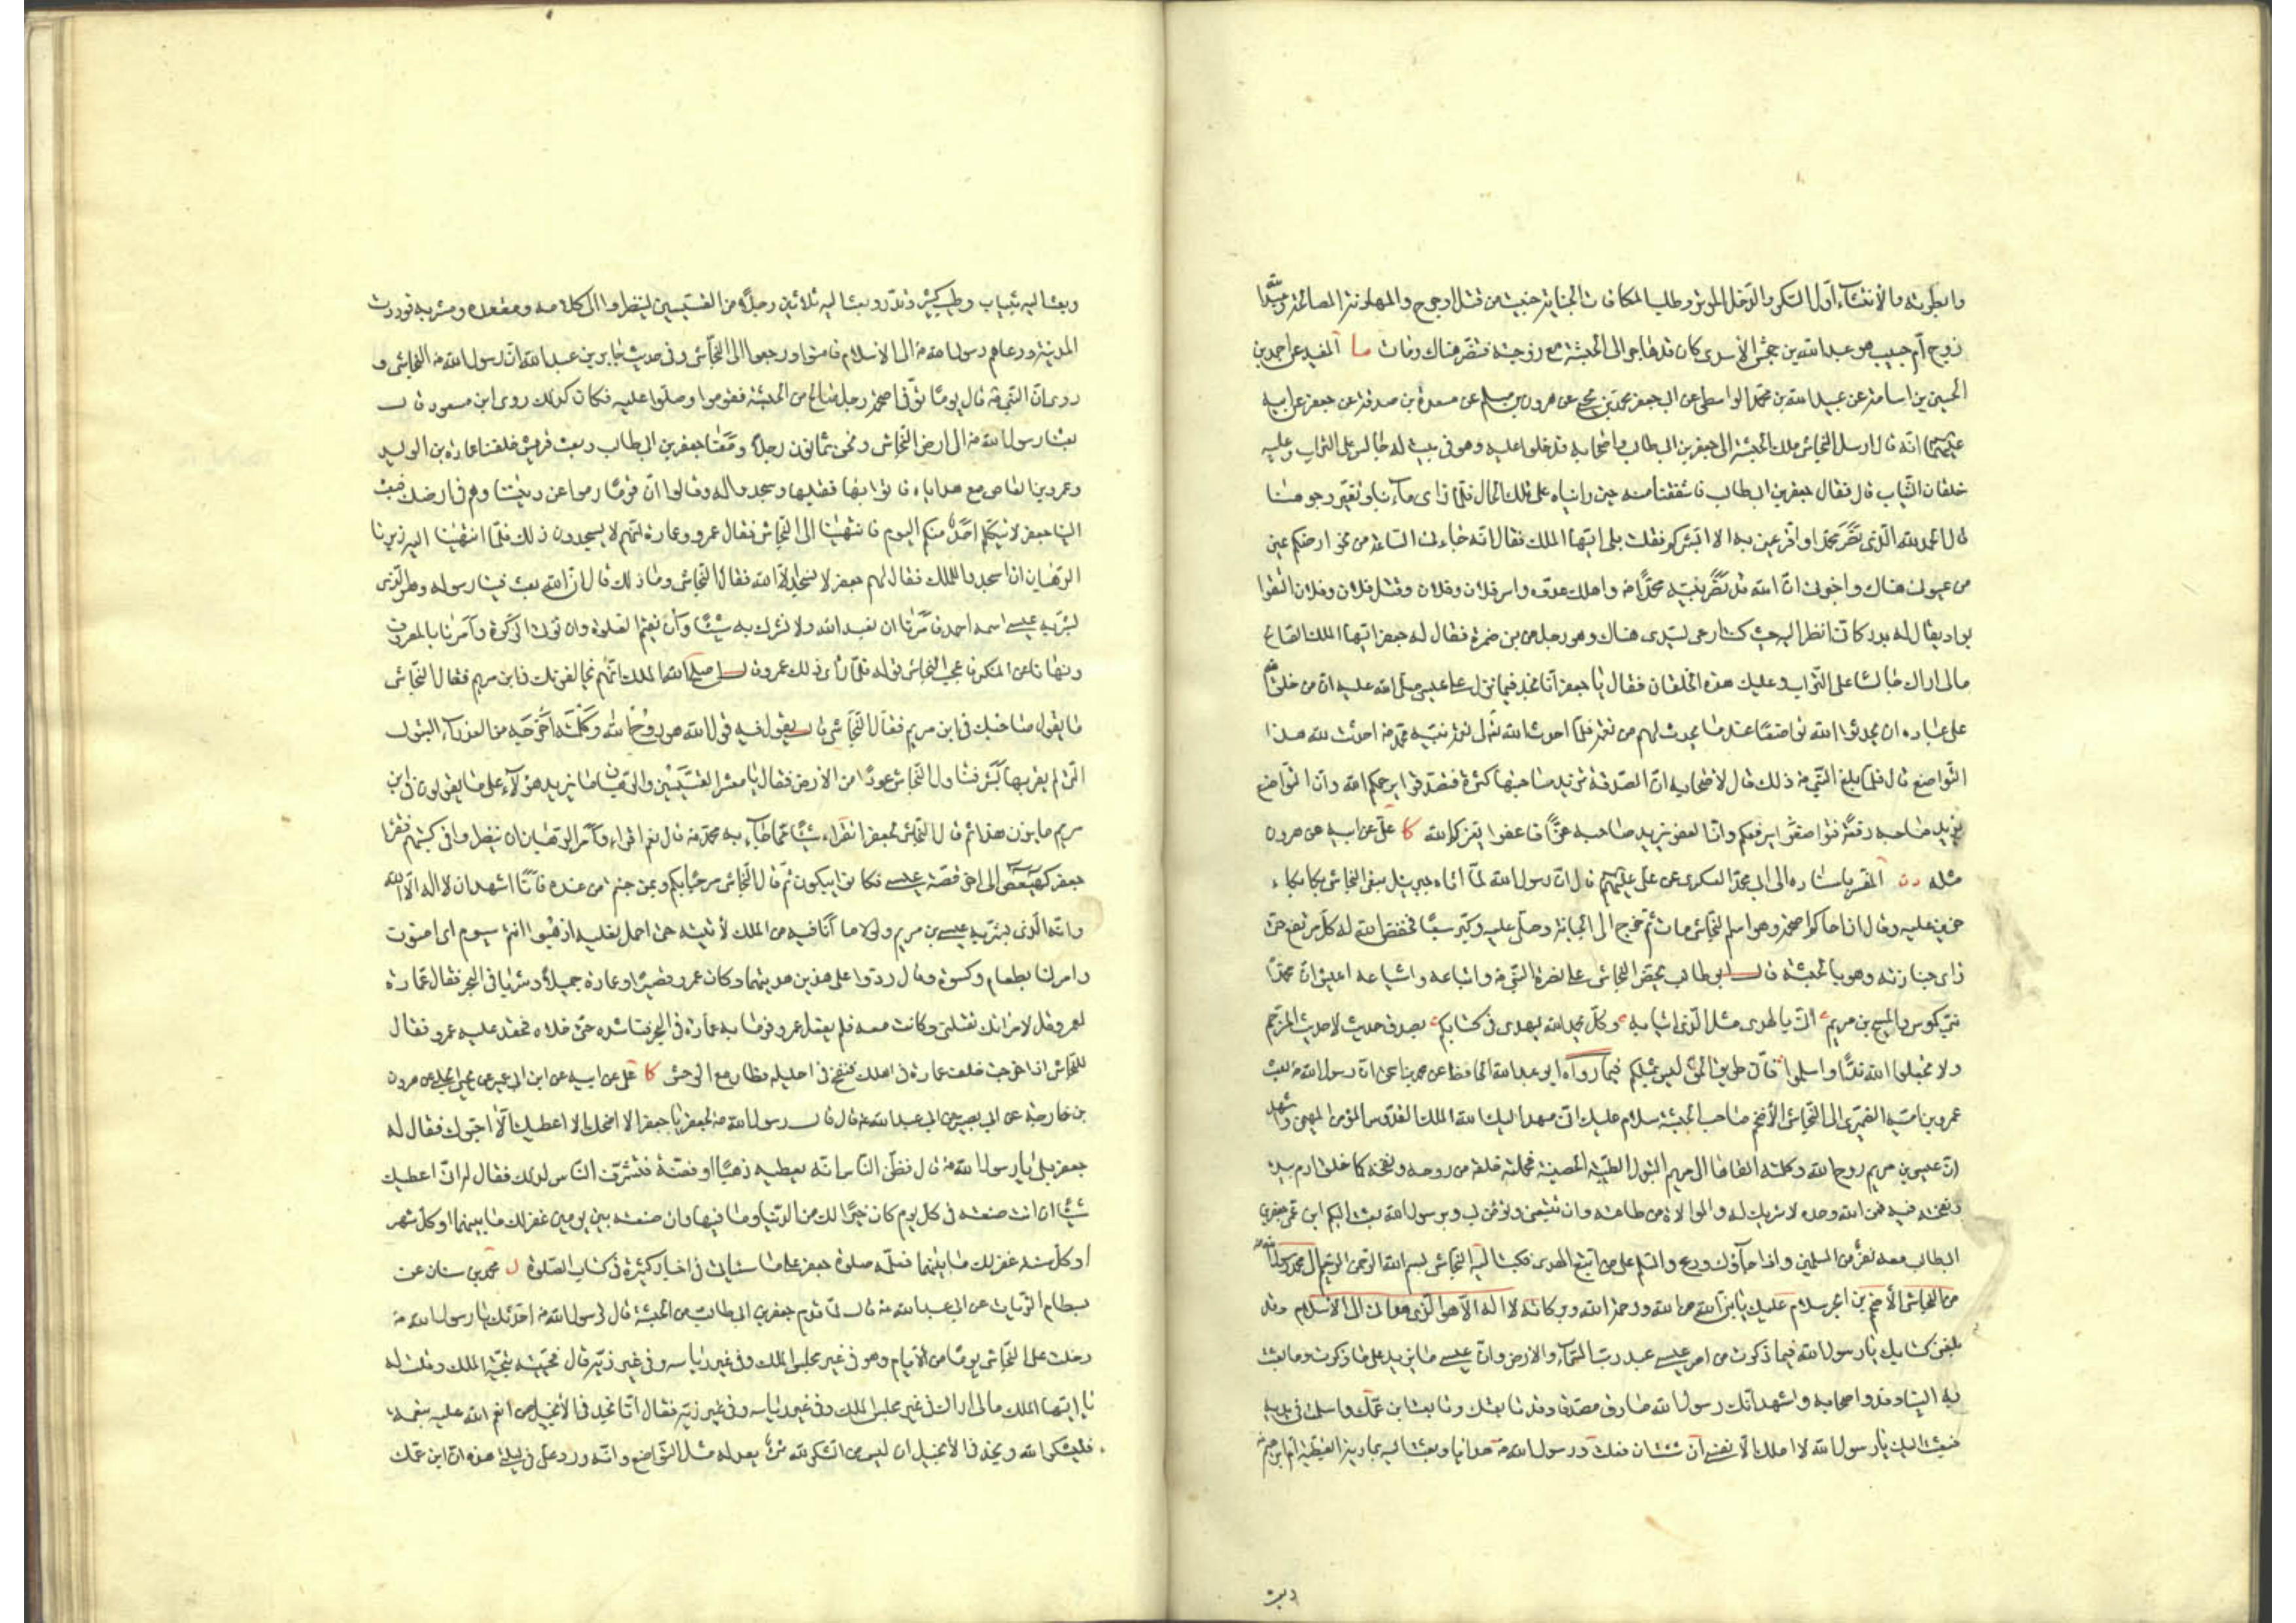 وابطرته والانتشاء اول السكر والدخل الموتور وطلب المكافات بالجناية جنيت من قتل او جرح والمهادنة المصالحة وعبيد الله
زوج ام حبيب هو عبد الله بن جحش الاسدي كان قد هاجر الى الحبشة مع زوجته فتنصر هناك ومات ما المفيد عن احمد بن
الحسين بن اسامة عن عبيد الله بن محمد الواسطي عن ابي جعفر محمد بن يحيى عن هرون بن مسلم عن مسعدة بن صدقة عن جعفر عن ابيه
عليهما انه قال ارسل النجاشي ملك الحبشة الى جعفر بن ابيطالب واصحابه فدخلوا عليه وهو في بيت له جالس على التراب وعليه
خلقان الثياب قال فقال جعفر بن ابيطالب فاشفقنا منه حين رايناه على تلك الحال فلما راى ما بنا وتغير وجوهنا
قال الحمد لله الذي نصر محمدا واقر عيني به الا ابشركم فقلت بلى ايها الملك فقال انه جاءني الساعة من نحو ارضكم عين
من عيوني هناك واخبرني ان الله قد نصر نبيه محمدا ص واهلك عدوه واسر فلان وفلان وقتل فلان وفلان التقوا
بواد يقال له بدر كاني انظر اليه حيث كنت ارعى لسيدي هناك وهو رجل من بني ضمرة فقال له جعفر ايها الملك الصالح
مالي اراك جالسا على التراب وعليك هذه الخلقان فقال يا جعفر انا نجد فيما انزل على عيسى صلى الله عليه ان من حق الله
على عباده ان يحدثوا لله تواضعا عند ما يحدث لهم من نعمة فلما احدث الله تعالى لي نعمة نبيه محمد ص احدثت لله هذا
التواضع قال فلما بلغ النبي ص ذلك قال لاصحابه ان الصدقة تزيد صاحبها كثرة فتصدقوا يرحمكم الله وان التواضع
يزيد صاحبه رفعة فتواضعوا يرفعكم وان العفو يزيد صاحبه عزا فاعفوا يعزكم الله كا علي عن ابيه عن هرون
مثله ن المفسر باسناده الى ابي محمد العسكري عن علي عليهم قال ان رسول الله لما اتاه جبرئيل بنعي النجاشي بكا بكاء
حزين عليه وقال ان اخاكم اصحمة وهو اسم النجاشي مات ثم خرج الى الجبانة وصلى عليه وكبر سبعا فخفض الله له كل مرتفع حتى
راى جنازته وهو بالحبشة قال ابو طالب يحض النجاشي على نصرة النبي ص واتباعه واشياعه اعلموا ان محمدا
نبي كموسى والمسيح بن مريم اتى بالهدى مثل الذي اتيا به وكل بحمد الله يهدي في كتابكم بصدق حديث لا حديث المرجم
ولا تجعلوا لله ندا واسلموا فان طريق الحق ليس بمظلم فيما رواه ابو عبد الله الحافظ عن محمد بن اسحق ان رسول الله ص بعث
عمرو بن امية الضمري الى النجاشي الاصحم صاحب الحبشة سلام عليك اني مهدا اليك الله الملك القدوس المؤمن المهيمن واشهد
ان عيسى بن مريم روح الله وكلمته القاها الى مريم البتول الطيبة الحصينة فحملت خلقه من روحه ونفخه كما خلق ادم بيده
ونفخه فيه من الله وحده لا شريك له والموالاة من طاعته وان تتبعني وتؤمن بي وبرسول الله بعث اليكم ابن عمي جعفر بن
ابيطالب معه نفر من المسلمين واذا جاؤك ودع والسلم على من اتبع الهدى فكتب اليه النجاشي بسم الله الرحمن الرحيم الى محمد رسول الله
من النجاشي الاصحم بن ابجر سلام عليك يا نبي الله من الله ورحمة الله وبركاته لا اله الا هو الذي هداني الى الاسلام وقد
بلغني كتابك يا رسول الله فيما ذكرت من امر عيسى عبد رب السماء والارض وان عيسى ما يزيد على ما ذكرت وما بعثت
به الينا وقدم اصحابه واشهد انك رسول الله صادق مصدق وقد بايعتك وبايعت ابن عمك واسلمت في يديه
فبعثت اليك يا رسول الله لا املك الا نفسي ان شئت ان ورسول الله ص هدايا وبعث اليه بمارية القبطية ام ابرهيم
وبعث
وبعث اليه بثياب وطيب كثير وبعث اليه ثلاثين رجلا من القسيسين لينظروا الى كلامه ومقعده ومشربه فوردت
المدينة ودعاهم رسول الله ص الى الاسلام فامنوا ورجعوا الى النجاشي وفي حديث جابر بن عبد الله ان رسول الله ص النجاشي و
روى ان النبي ص قال يوما توفي اصحمة رجل صالح من الحبشة فقوموا وصلوا عليه فكان كذلك روى ابن مسعود قال
بعثنا رسول الله ص الى ارض النجاشي ونحن ثمانون رجلا ومعنا جعفر بن ابيطالب وبعث قريش خلفنا عمارة بن الوليد
وعمرو بن العاص مع هدايا فاتوا بها فقبلها وسجدوا له وقالوا ان قوما رغبوا عن ديننا وهم في ارضك فبعث
الينا جعفر لا يتكلم احد منكم اليوم فانتهينا الى النجاشي فقال عمرو وعمارة انهم لا يسجدون لك فلما انتهينا اليه زبرنا
الرهبان ان اسجدوا للملك فقال لهم جعفر لا نسجد الا لله فقال النجاشي وما ذلك قال ان الله بعث فينا رسوله وهو الذي
بشر به عيسى اسمه احمد فامرنا ان نعبد الله ولا نشرك به شيئا وان نقيم الصلوة وان نوتي الزكوة وامرنا بالمعروف
ونهانا عن المنكر فاعجب النجاشي قوله فلما راى ذلك عمرو قال اصلح الله الملك انهم يخالفونك في ابن مريم فقال النجاشي
ما يقول صاحبك في ابن مريم فقال النجاشي قال يقول فيه قول الله هو روح الله وكلمته اخرجه من العذراء البتول
التي لم يقربها بشر فتناول النجاشي عودا من الارض فقال يا معشر القسيسين والرهبان ما يزيد هؤلاء على ما يقولون في ابن
مريم ما يزن هذا ثم قال النجاشي لجعفر اتقراء شيئا مما جاء به محمد ص قال نعم اقراء وامر الرهبان ان ينظروا في كتبهم فقرا
جعفر كهيعص الى اخر قصة عيسى فكانوا يبكون ثم قال النجاشي مرحبا بكم وبمن جئتم من عنده فانا اشهد ان لا اله الا الله
وانه الذي بشر به عيسى بن مريم ولولا ما انا فيه من الملك لاتيته حتى احمل نعليه اذهبوا انتم سيوم اي امنون
وامر لنا بطعام وكسوة وقال ردوا على هذين هديتهما وكان عمرو قصيرا وعمارة جميلا وشربا في البحر فقال عمارة
لعمرو قل لامراتك تقبلني وكانت معه فلم يفعل عمرو فرما به عمارة في البحر فناشده حتى خلاه فحقد عليه عمرو فقال
للنجاشي اذا خرجت خلف عمارة في اهلك فنفخ في احليله فطار مع الوحش كا علي عن ابيه عن ابن ابي عمير عن يحيى الحلبي عن هرون
بن خارجة عن ابي بصير عن ابي عبد الله ع قال قال رسول الله ص لجعفر يا جعفر الا امنحك الا اعطيك الا احبوك فقال له
جعفر بلى يا رسول الله ص قال فظن الناس انه يعطيه ذهبا او فضة فتشرف الناس لذلك فقال له اني اعطيك
شيئا ان انت صنعته في كل يوم كان خيرا لك من الدنيا وما فيها وان صنعته بين يومين غفر لك ما بينهما او كل شهر
او كل سنة غفر لك ما بينهما فعلمه صلوة جعفر على ما سياتي في اخبار كثيرة في كتاب الصلوة محمد بن سنان عن
بسطام الزيات عن ابي عبد الله ع قال لما قدم جعفر بن ابيطالب من الحبشة قال لرسول الله ص احدثك يا رسول الله ص
دخلت على النجاشي يوما من الايام وهو في غير مجلس الملك وفي غير رياسه وفي غير زيه قال فحييته بتحية الملك وقلت له
يا ايها الملك مالي اراك في غير مجلس الملك وفي غير رياسه وفي غير زيه فقال انا نجد في الانجيل من انعم الله عليه بنعمة
فليشكر الله ونجد في الانجيل ان ليس من الشكر لله شئ يعدله مثل التواضع وانه ورد علي في ليلتي هذه ان ابن عمك